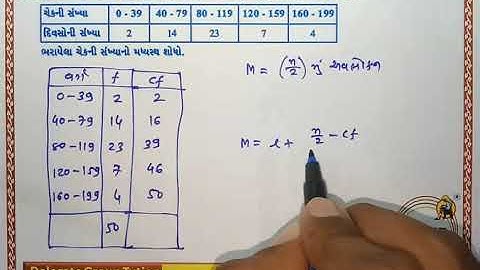 ચેકની સંખ્યા 0 - 39 40 - 79 80 - 119 120 - 159 160 - 199
દિવસોની સંખ્યા 2 14 23 7 4
ભરાયેલા ચેકની સંખ્યાનો મધ્યસ્થ શોધો.
વર્ગ f cf
0-39 2 2
40-79 14 16
80-119 23 39
120-159 7 46
160-199 4 50
50
M = (n/2) નું અવલોકન
M = l + n/2 - cf